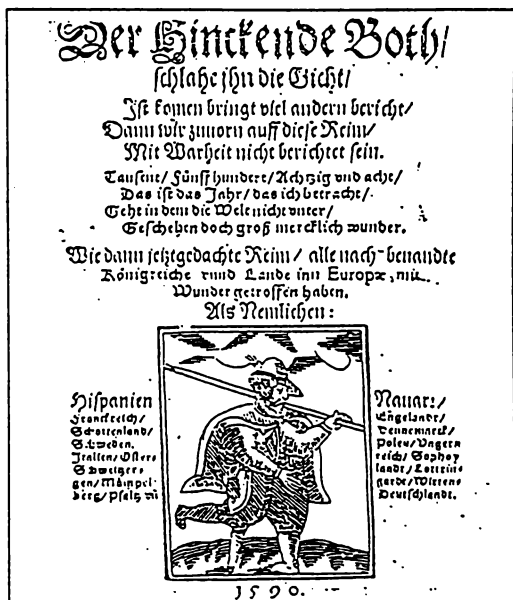 Der Hinckende Both/
schlahe jhn die Gicht/
Ist komen bringt viel andern bericht/
Dann wir zuuorn auff diese Reim/
Mit Warheit nicht berichtet sein.
Tausent/ Fünff hundert/ Achtzig vnd acht/
Das ist das Jahr/ das ich betracht/
Geht in dem die Welt nicht vnter/
Geschehen doch groß mercklich wunder.
Wie dann jetztgedachte Reim/ alle nach-benandte
Königreiche vnnd Lande inn Europæ, mit
Wunder getroffen haben.
Als Nemlichen:
Hispanien
Franckreich/
Schottenland/
Schweden.
Italien/ Osters
Schweitzer-
gen/ Mümpel
berg/ Pfaltz vñ
Nauar:/
Engelandt/
Dennemarck/
Polen/ Vngern
reich/ Saphoy
landt/ Lottrin-
garde/ Wirten-
Deutschlandt.
1590.